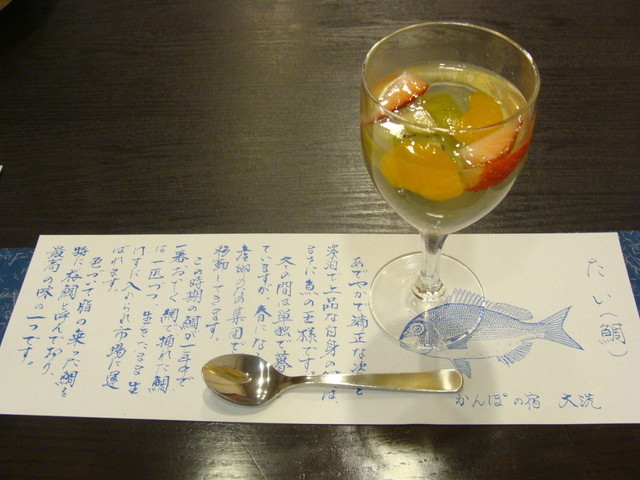 たい（鯛）
あでやかで端正な姿と
淡泊で上品な白身の
まさに魚の王様です。
冬の間は単独で暮
ていますが、春にな
産卵の為集団で
移動してきます。
この時期の鯛が一年中で
一番おいしく網で捕れた鯛
は一匹づつ、生きたまま生
けすに入れられ市場に運
ばれます。
色づいて脂の乗った鯛を
特に桜鯛と呼んでおり、
最高の味の一つです。
かんぽの宿 大洗